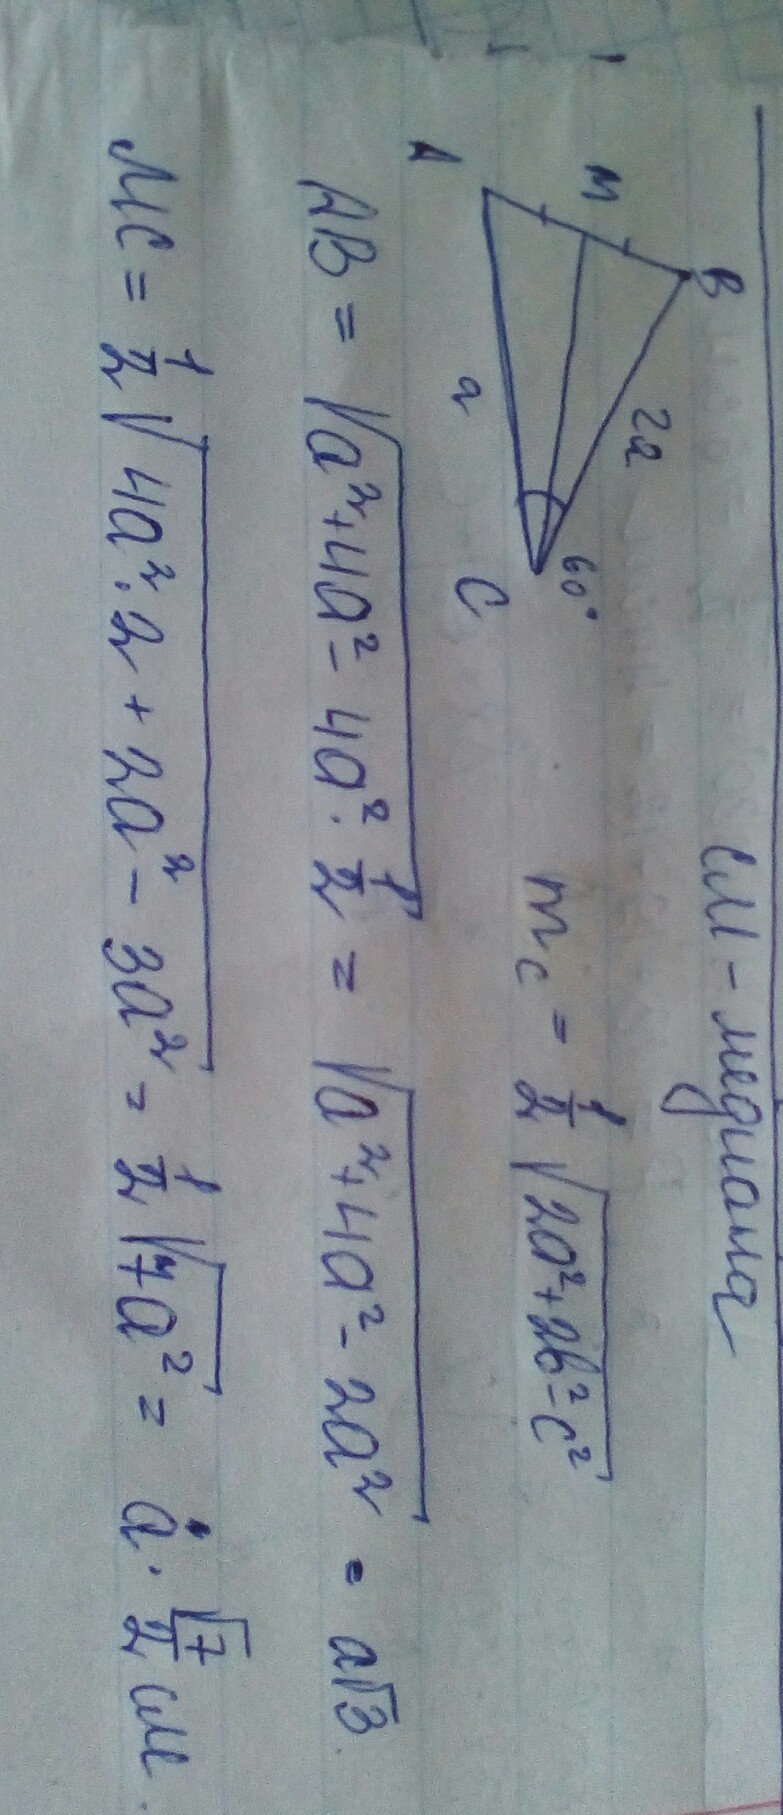 CM - медиана
B
M
A
2a
60°
a
C
m_c = 1/2 √(2a² + 2b² - c²)
AB = √(a² + 4a² - 4a² · 1/2) = √(a² + 4a² - 2a²) = a√3.
MC = 1/2 √(4a² · 2 + 2a² - 3a²) = 1/2 √(7a²) = a · √7/2 см.